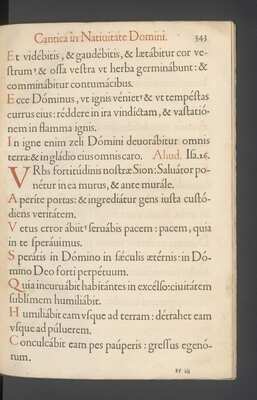 Cantica in Natiuitate Domini. 343
Et vidébitis, & gaudébitis, & lætábitur cor ve-
strum: & ossa vestra vt herba germinábunt: &
comminábitur contumácibus.
Ecce Dóminus, vt ignis véniet: & vt tempéstas
currus eius: réddere in ira vindíctam, & vastatió-
nem in flamma ignis.
In igne enim zeli Dómini deuorábitur omnis
terra: & in gládio eius omnis caro. Aliud. Isa. 26.
VRbs fortitúdinis nostræ Sion: Saluátor po-
nétur in ea murus, & ante murále.
Aperíte portas: & ingrediátur gens iusta custó-
diens veritátem.
Vetus error ábiit: seruábis pacem: pacem, quia
in te speráuimus.
Sperátis in Dómino in sæculis ætérnis: in Dó-
mino Deo forti perpétuum.
Quia incuruábit habitántes in excélso: ciuitátem
sublímem humiliábit.
Humiliábit eam vsque ad terram: détrahet eam
vsque ad púluerem.
Conculcábit eam pes páuperis: gressus egenó-
rum.